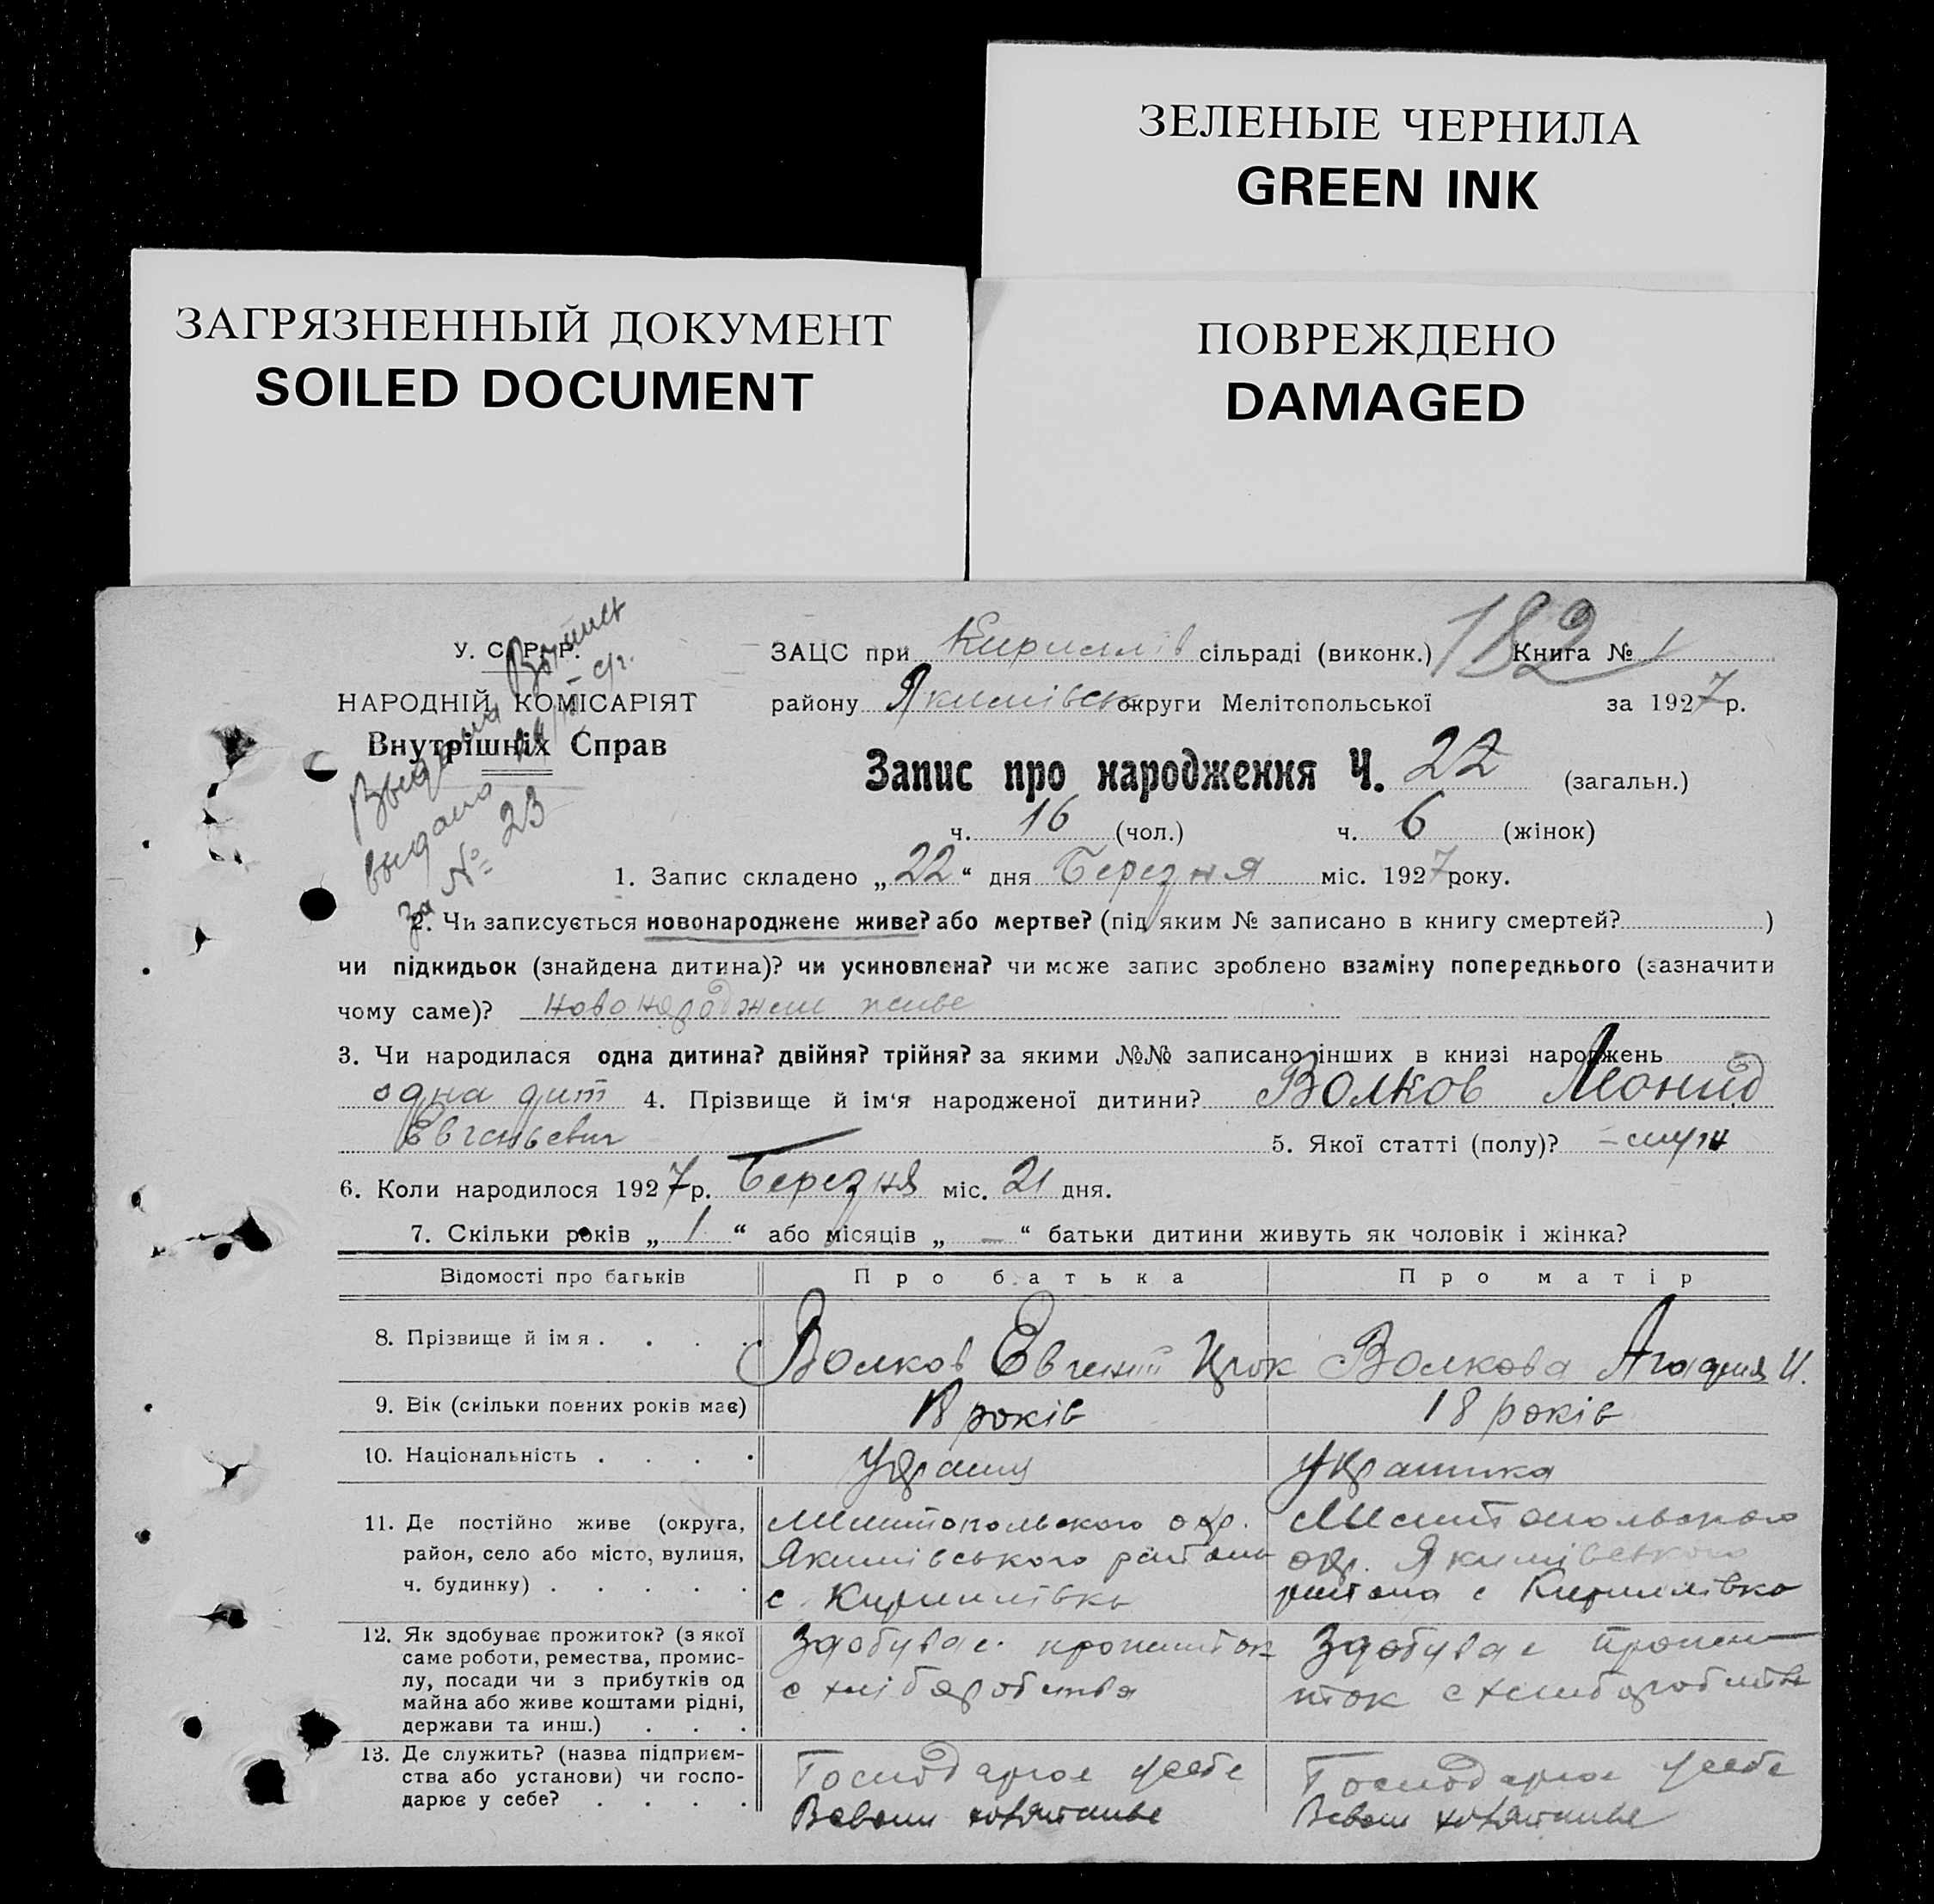 ЗЕЛЕНЫЕ ЧЕРНИЛА
GREEN INK
ЗАГРЯЗНЕННЫЙ ДОКУМЕНТ
SOILED DOCUMENT
ПОВРЕЖДЕНО
DAMAGED
У. С. Р. Р.
НАРОДНІЙ КОМІСАРІЯТ
Внутрішніх Справ
выдано
за № 23
ЗАЦС при Кириллів сільраді (виконк.) 182 Книга № 1
району Якимівськ округи Мелітопольської за 1927 р.
Запис про народження Ч. 22 (загальн.)
ч. 16 (чол.) ч. 6 (жінок)
1. Запис складено „22“ дня Березня міс. 1927 року.
2. Чи записується новонароджене живе? або мертве? (під яким № записано в книгу смертей? )
чи підкидьок (знайдена дитина)? чи усиновлена? чи може запис зроблено взаміну попереднього (зазначити
чому саме)? новонароджене живе
3. Чи народилася одна дитина? двійня? трійня? за якими №№ записано інших в книзі народжень
одна дит 4. Прізвище й ім‘я народженої дитини? Волков Леонид
Евгеньевич 5. Якої статті (полу)? – муж
6. Коли народилося 1927 р. Березня міс. 21 дня.
7. Скільки років „ 1 “ або місяців „ – “ батьки дитини живуть як чоловік і жінка?
Відомості про батьків Про батька Про матір
8. Прізвище й імя . . . . Волков Евгений Волкова И.
9. Вік (скільки повних років має) 18 років 18 років
10. Національність . . . . Украинка
11. Де постійно живе (округа, Мелитопольского окр. Мелитопольского
район, село або місто, вулиця, Якимівського района окр. Якимівського
ч. будинку) . . . . . с. Кириллівка района с Кириллівка
12. Як здобуває прожиток? (з якої Здобувае прожиток Здобувае прожи-
саме роботи, ремества, промис-
лу, посади чи з прибутків од с хлібаробства ток с хлибаробств
майна або живе коштами рідні,
держави та инш.) . . .
13. Де служить? (назва підприєм- Господарюе у себе Господарюе у себе
ства або установи) чи госпо-
дарює у себе? . . . .